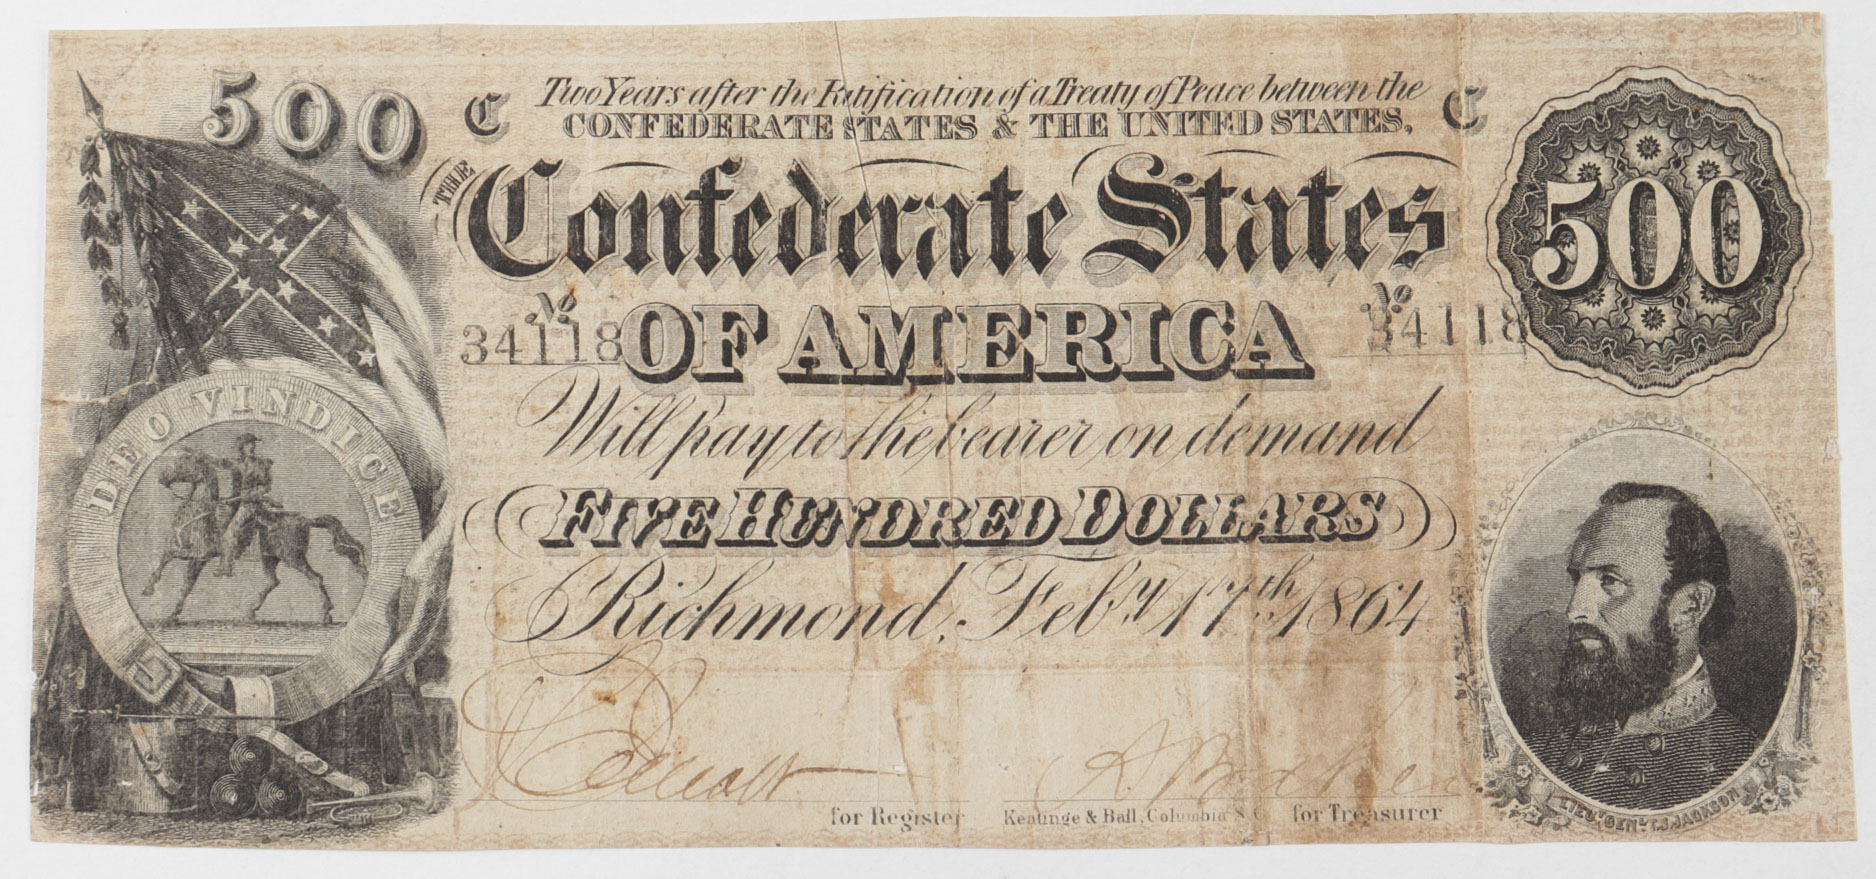 500
C Two Years after the Ratification of a Treaty of Peace between the C
CONFEDERATE STATES & THE UNITED STATES,
500
THE Confederate States
No 34118 OF AMERICA No 34118
Will pay to the bearer on demand
DEO VINDICE
FIVE HUNDRED DOLLARS
Richmond, Feb'y 17th 1864
for Register
Keatinge & Ball, Columbia S.C.
for Treasurer
LIEUT. GENL. T.J. JACKSON